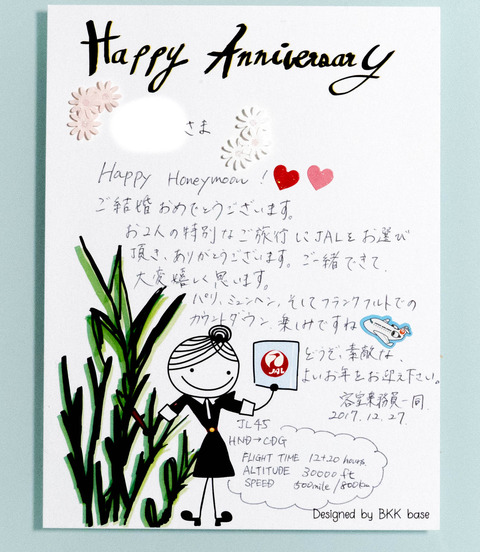 Happy Anniversary
さま
Happy Honeymoon!
ご結婚おめでとうございます。
お2人の特別なご旅行にJALをお選び
頂き、ありがとうございます。ご一緒できて、
大変嬉しく思います。
パリ、ミュンヘン、そしてフランクフルトでの
カウントダウン、楽しみですね
どうぞ、素敵な、
よいお年をお迎え下さい。
客室乗務員一同
2017.12.27.
JAL
JL45
HND→CDG
FLIGHT TIME 12+20 hours.
ALTITUDE 30000ft
SPEED 500mile/800km
Designed by BKK base